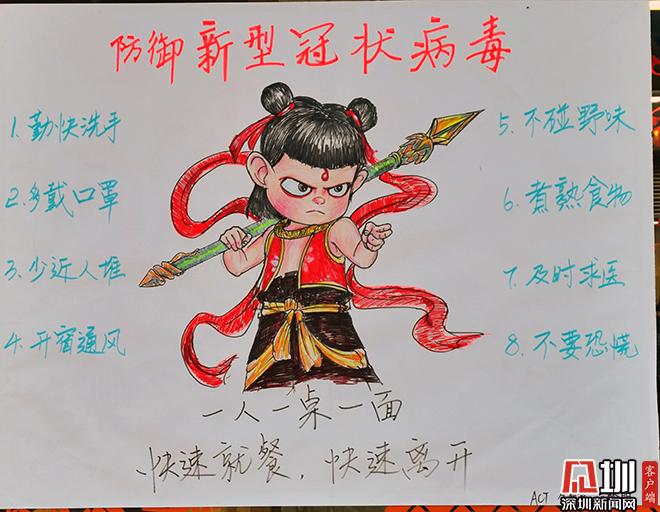 防御新型冠状病毒
1.勤快洗手
2.多戴口罩
3.少近人堆
4.开窗通风
5.不碰野味
6.煮熟食物
7.及时求医
8.不要恐慌
一人一桌一面
快速就餐，快速离开
ACT
圳
客户端
深圳新闻网